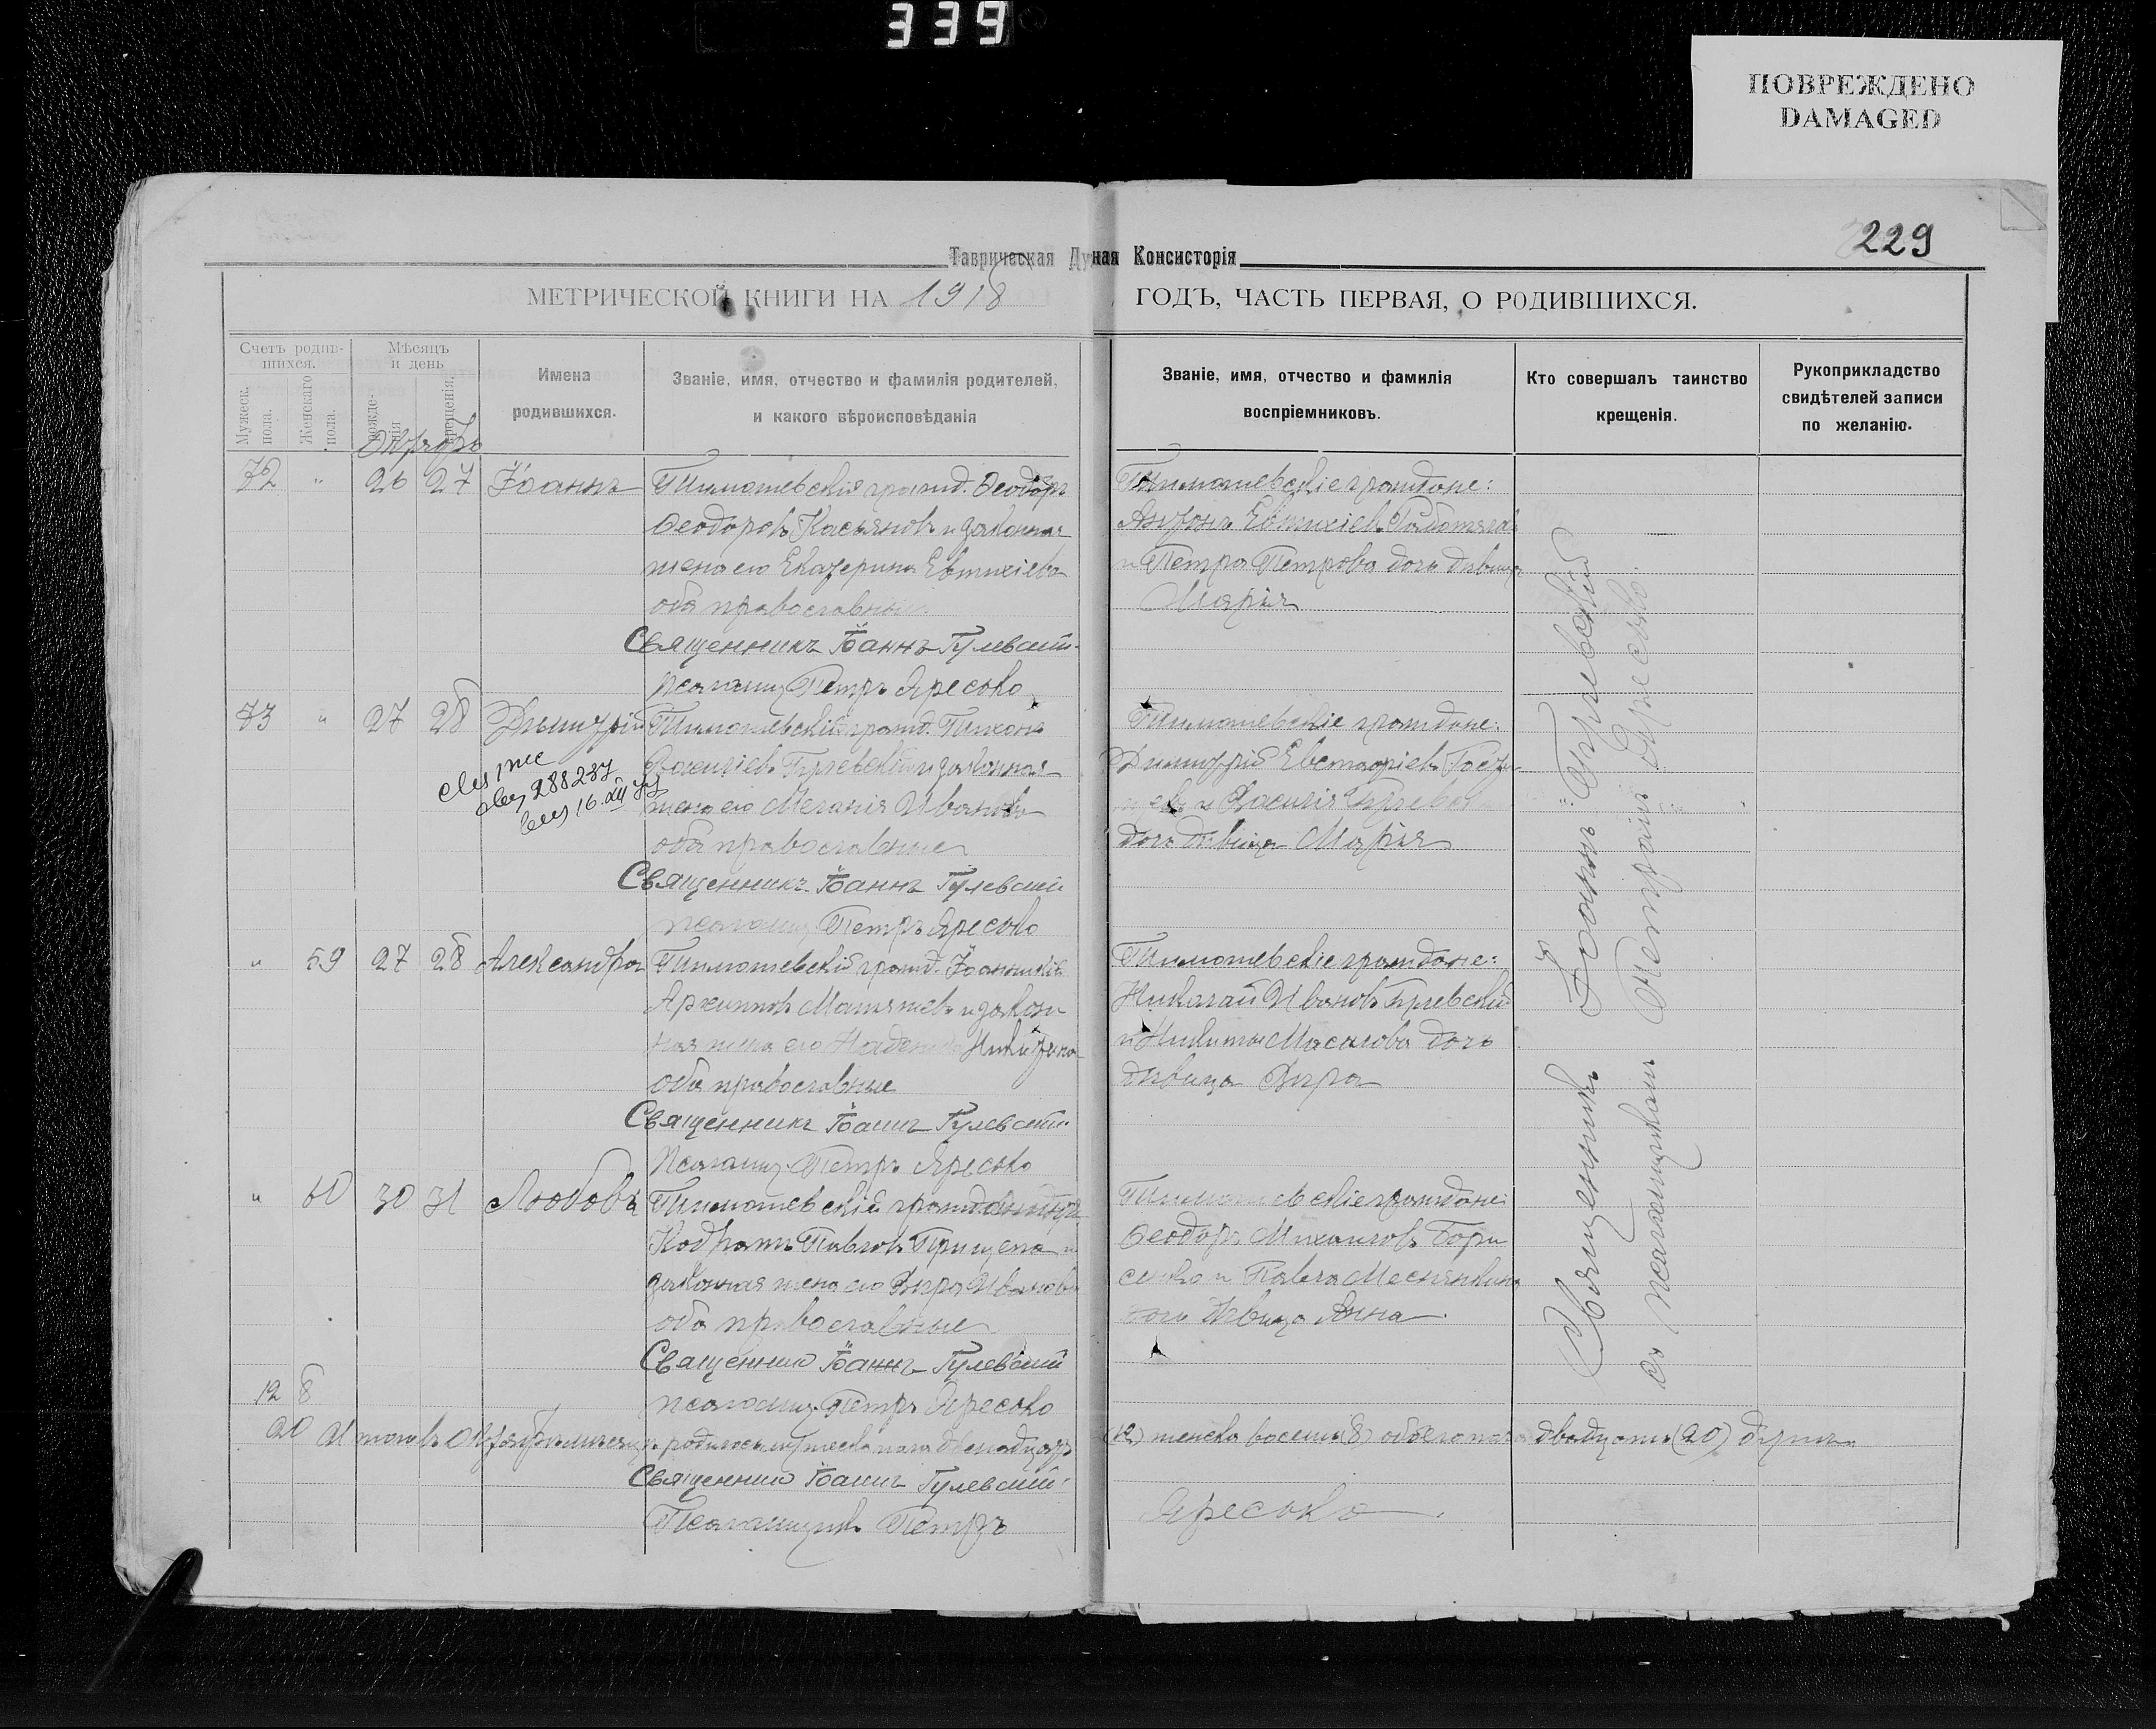 339
ПОВРЕЖДЕНО
DAMAGED
229
Таврическая Духная Консисторія
МЕТРИЧЕСКОЙ КНИГИ НА 1918 ГОДЪ, ЧАСТЬ ПЕРВАЯ, О РОДИВШИХСЯ.
Счетъ родив-
шихся.
Мужеск. пола.
Женскаго пола.
Мѣсяцъ
и день
рожде-
нія
крещенія.
Имена
родившихся.
Званіе, имя, отчество и фамилія родителей,
и какого вѣроисповѣданія
Званіе, имя, отчество и фамилія
воспріемниковъ.
Кто совершалъ таинство
крещенія.
Рукоприкладство
свидѣтелей записи
по желанію.
Октября
72 " 26 27 Іоаннъ Тимошевскій гражд. Ѳеодоръ
Ѳеодоровъ Касьяновъ и законная
жена его Екатерина Евтихіева
оба православные
Священникъ Іоаннъ Гулевскій
Псаломщ. Петръ Яресько
Тимошевскіе граждане:
Антонъ Евтихіевъ
и Петра Петрова дочь дѣвица
Марія
73 " 27 28 Димитрій Тимошевскій гражд. Тихонъ
Василіевъ Гулевскій и законная
жена его Меланія Иванова
оба православные
Священникъ Іоаннъ Гулевскій
псаломщ. Петръ Яресько
288287
16.XII
Тимошевскіе граждане:
Димитрій Евстафіевъ
и Василія Гулевскаго
дочь дѣвица Марія
" 59 27 28 Александра Тимошевскій гражд. Іоанникій
Архиповъ Матяшевъ и закон-
ная жена его Надежда Никитина
оба православные
Священникъ Іоаннъ Гулевскій
Псаломщ. Петръ Яресько
Тимошевскіе граждане:
Николай Ивановъ Гулевскій
и Никиты Маслова дочь
дѣвица Вѣра
" 60 30 31 Любовь Тимошевскій гражданинъ
Кодратъ Павловъ Прищепа и
законная жена его Вѣра Иванова
оба православные
Священникъ Іоаннъ Гулевскій
псаломщ. Петръ Яресько
Тимошевскіе граждане:
Ѳеодоръ Михаиловъ Бори-
сенко и Павла
дочь дѣвица Анна
Священникъ Іоаннъ Гулевскій
съ псаломщикомъ Петромъ Яресько.
12 8
20 Итого въ Октябрѣ мѣсяцѣ родилось мужеска пола двѣнадцать (12) женска восемь (8) обоего пола двадцать (20) душъ.
Священникъ Іоаннъ Гулевскій
Псаломщикъ Петръ Яресько.